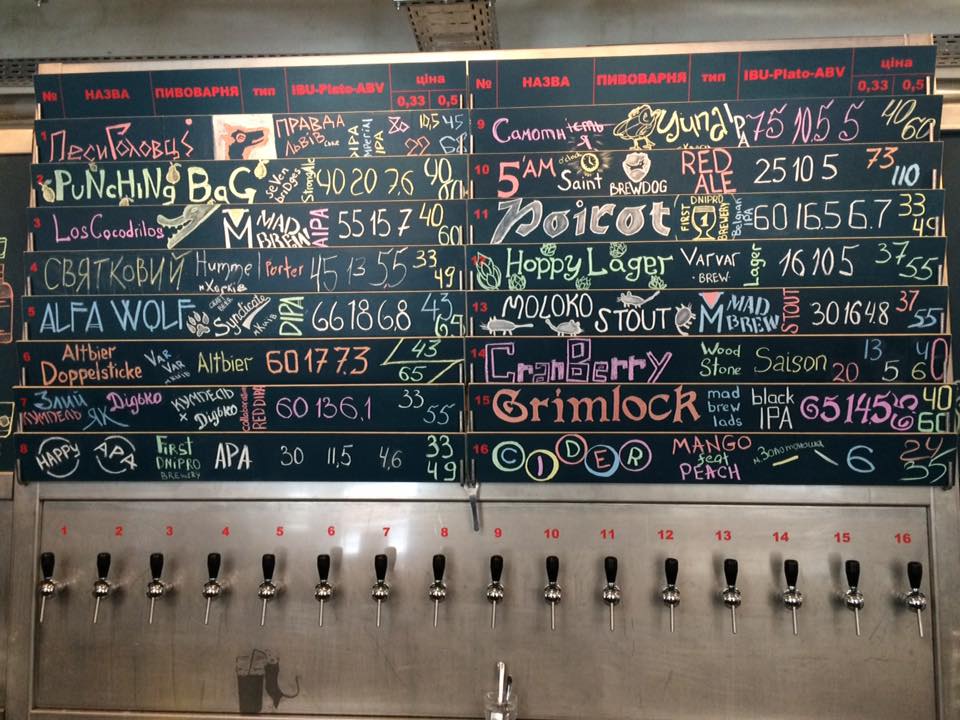 № НАЗВА ПИВОВАРНЯ ТИП IBU-Plato-ABV ціна 0,33 0,5
1 ПесиГоловці ПРАВДА ЛЬВІВ IPA Imperial IPA 80 10,5 45
22 68
2 PUNCHING BAG Seven bridges Strong ale 40 20 7,6 40
80
3 Los Cocodrilos M MAD BREW AIPA 55 15 7 40
60
4 СВЯТКОВИЙ Hummel м.Харків Porter 45 13 5,5 33
49
5 ALFA WOLF Syndicate м.Київ DIPA 66 18 6,8 43
64
6 Altbier Doppelsticke Var Var м.Київ Altbier 60 17 7.3 43
65
7 Злий ЯК Дідько Кумпель х Дідько collaboration RED IPA 60 13 6,1 33
55
8 HAPPY APA First DNIPRO BREWERY APA 30 11,5 4,6 33
49
№ НАЗВА ПИВОВАРНЯ ТИП IBU-Plato-ABV ціна 0,33 0,5
9 Самотність Ципа 75 10.5 5 40
60
10 5 'AM o'clock Saint BREWDOG RED ALE 25 10 5 73
110
11 Poirot FIRST DNIPRO BREWERY Belgian IPA 60 16.5 6.7 33
49
12 Hoppy Lager Varvar BREW Lager 16 10 5 37
55
13 MOLOKO STOUT M MAD BREW STOUT 30 16 4.8 37
55
14 CranBerry Wood Stone Saison 20 13 5 40
60
15 Grimlock mad brew lads black IPA 65 14.5 6 40
60
16 CIDER MANGO feat PEACH м.Золотоноша 6 24
35
1 2 3 4 5 6 7 8 9 10 11 12 13 14 15 16